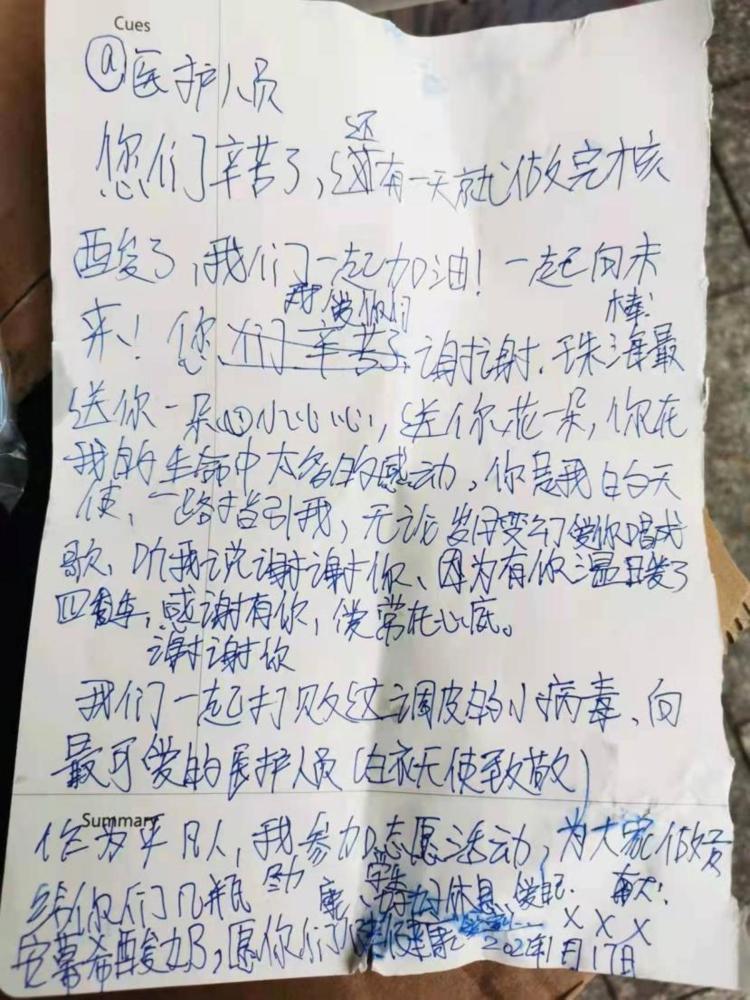 Cues
@医护人员
还
您们辛苦了,还有一天就做完核
酸了,我们一起加油!一起向未
我爱你们
棒!
来!您们辛苦了,谢谢,珠海最
送你一朵小心心,送你花一朵,你在
我的生命中太多的感动,你是我白天
使,一路指引我,无论岁月变幻爱你唱成
歌、听我说谢谢你、因为有你温暖了
四季,感谢有你,爱常在心底。
谢谢你
我们一起打败这调皮的小病毒、向
最可爱的医护人员(白衣天使致敬)
Summary
作为平凡人,我参加志愿活动,为大家做贡
给你们几瓶
尽力
康
休息
安慕希酸奶,愿你们健康
XXX
1月17日